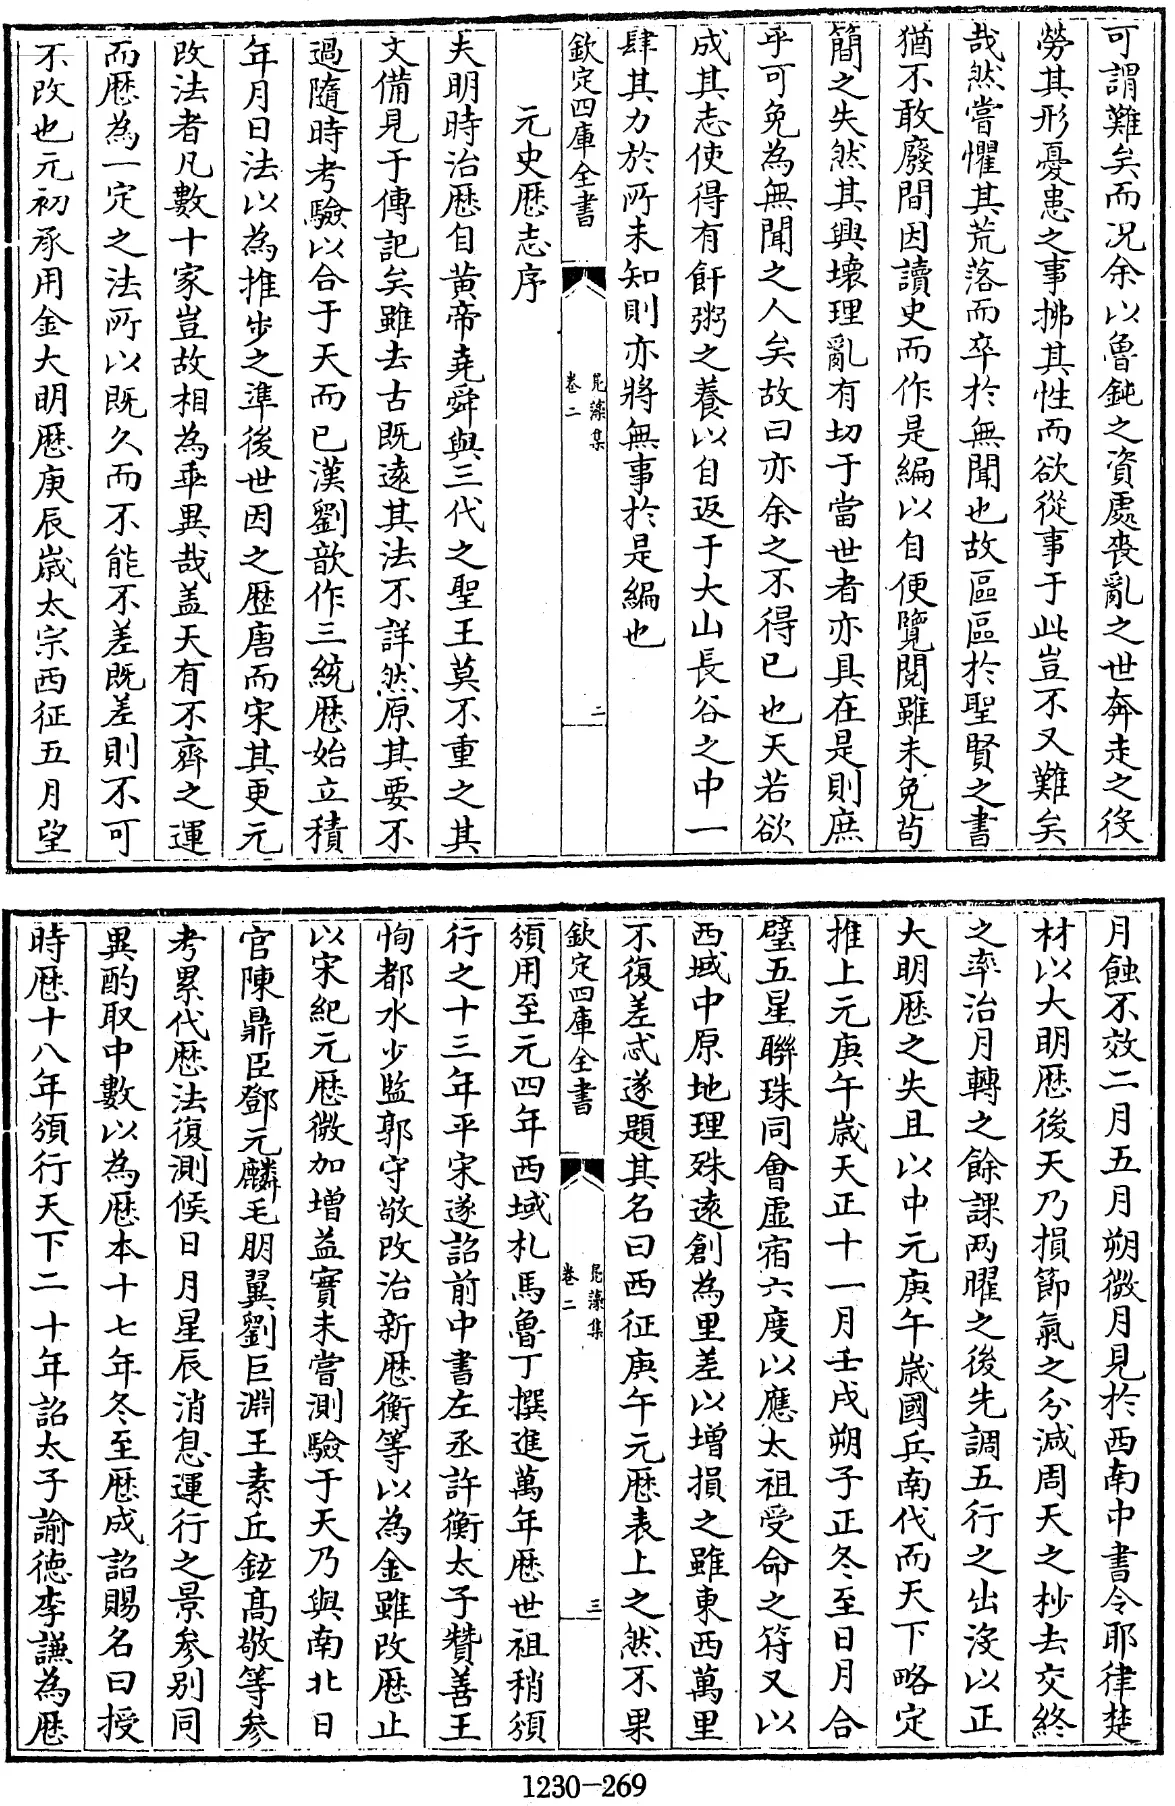 可謂難矣而况余以魯鈍之資處喪亂之世奔走之役
勞其形憂患之事拂其性而欲從事于此豈不又難矣
哉然嘗懼其荒落而卒於無聞也故區區於聖賢之書
猶不敢廢間因讀史而作是編以自便覽閱雖未免茍
簡之失然其興壞理亂有切于當世者亦具在是則庶
乎可免為無聞之人矣故曰亦余之不得已也天若欲
成其志使得有飦粥之養以自返于大山長谷之中一
肆其力於所未知則亦將無事於是編也
欽定四庫全書
凫藻集
卷二
二
元史厯志序
夫明時治厯自黄帝堯舜與三代之聖王莫不重之其
文備見于傳記矣雖去古既逺其法不詳然原其要不
過隨時考驗以合于天而已漢劉歆作三統厯始立積
年月日法以為推步之準後世因之歴唐而宋其更元
改法者凡數十家豈故相為乖異哉盖天有不齊之運
而厯為一定之法所以既久而不能不差既差則不可
不改也元初承用金大明厯庚辰歲太宗西征五月望
月蝕不效二月五月朔微月見於西南中書令耶律楚
材以大明厯後天乃損節氣之分減周天之杪去交終
之率治月轉之餘課两曜之後先調五行之出沒以正
大明厯之失且以中元庚午歲國兵南伐而天下略定
推上元庚午歲天正十一月壬戌朔子正冬至日月合
璧五星聯珠同會虚宿六度以應太祖受命之符又以
西域中原地理殊逺創為里差以增損之雖東西萬里
不復差忒遂題其名曰西征庚午元厯表上之然不果
欽定四庫全書
凫藻集
卷二
三
須用至元四年西域札馬魯丁撰進萬年厯世祖稍須
行之十三年平宋遂詔前中書左丞許衡太子贊善王
恂都水少監郭守敬改治新厯衡等以為金雖改厯止
以宋紀元厯微加增益實未嘗測驗于天乃與南北日
官陳鼎臣鄧元麟毛朋翼劉巨淵王素丘鉉髙敬等參
考累代厯法復測候日月星辰消息運行之景參别同
異酌取中數以為厯本十七年冬至厯成詔賜名曰授
時厯十八年須行天下二十年詔太子諭徳李謙為厯
1230-269